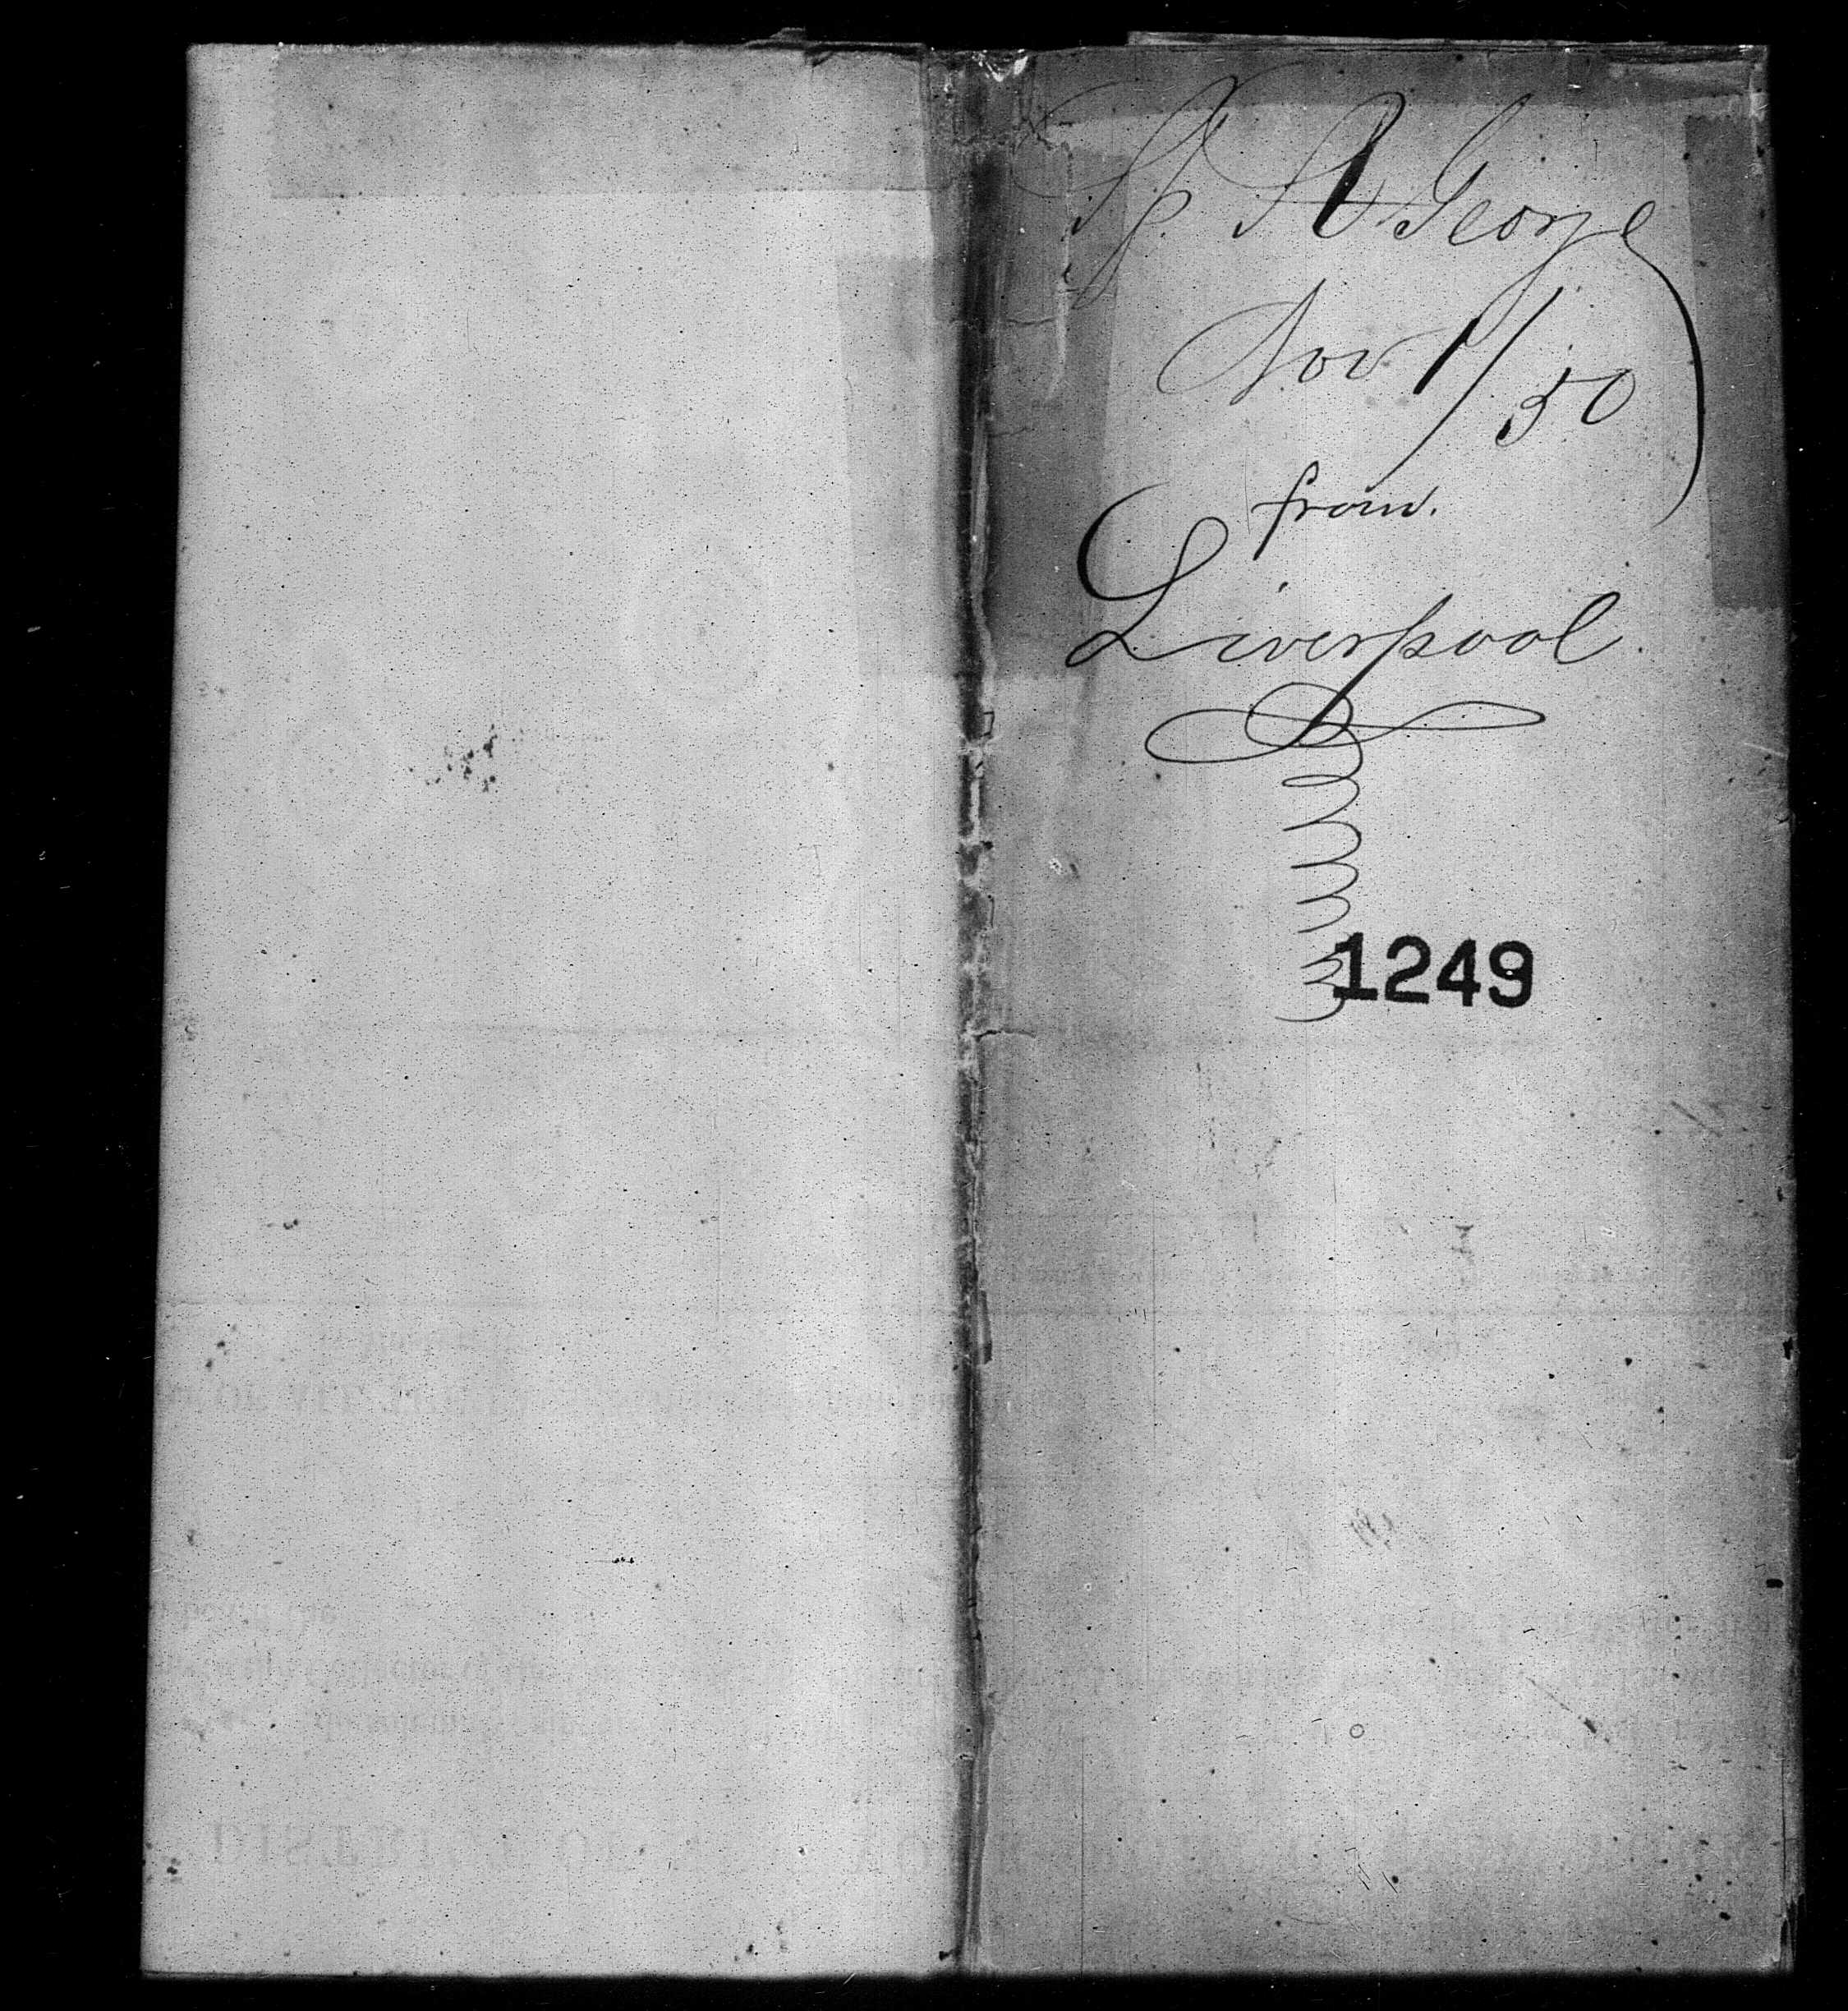 Sp. St George
Nov 1/50
from.
Liverpool.
1249